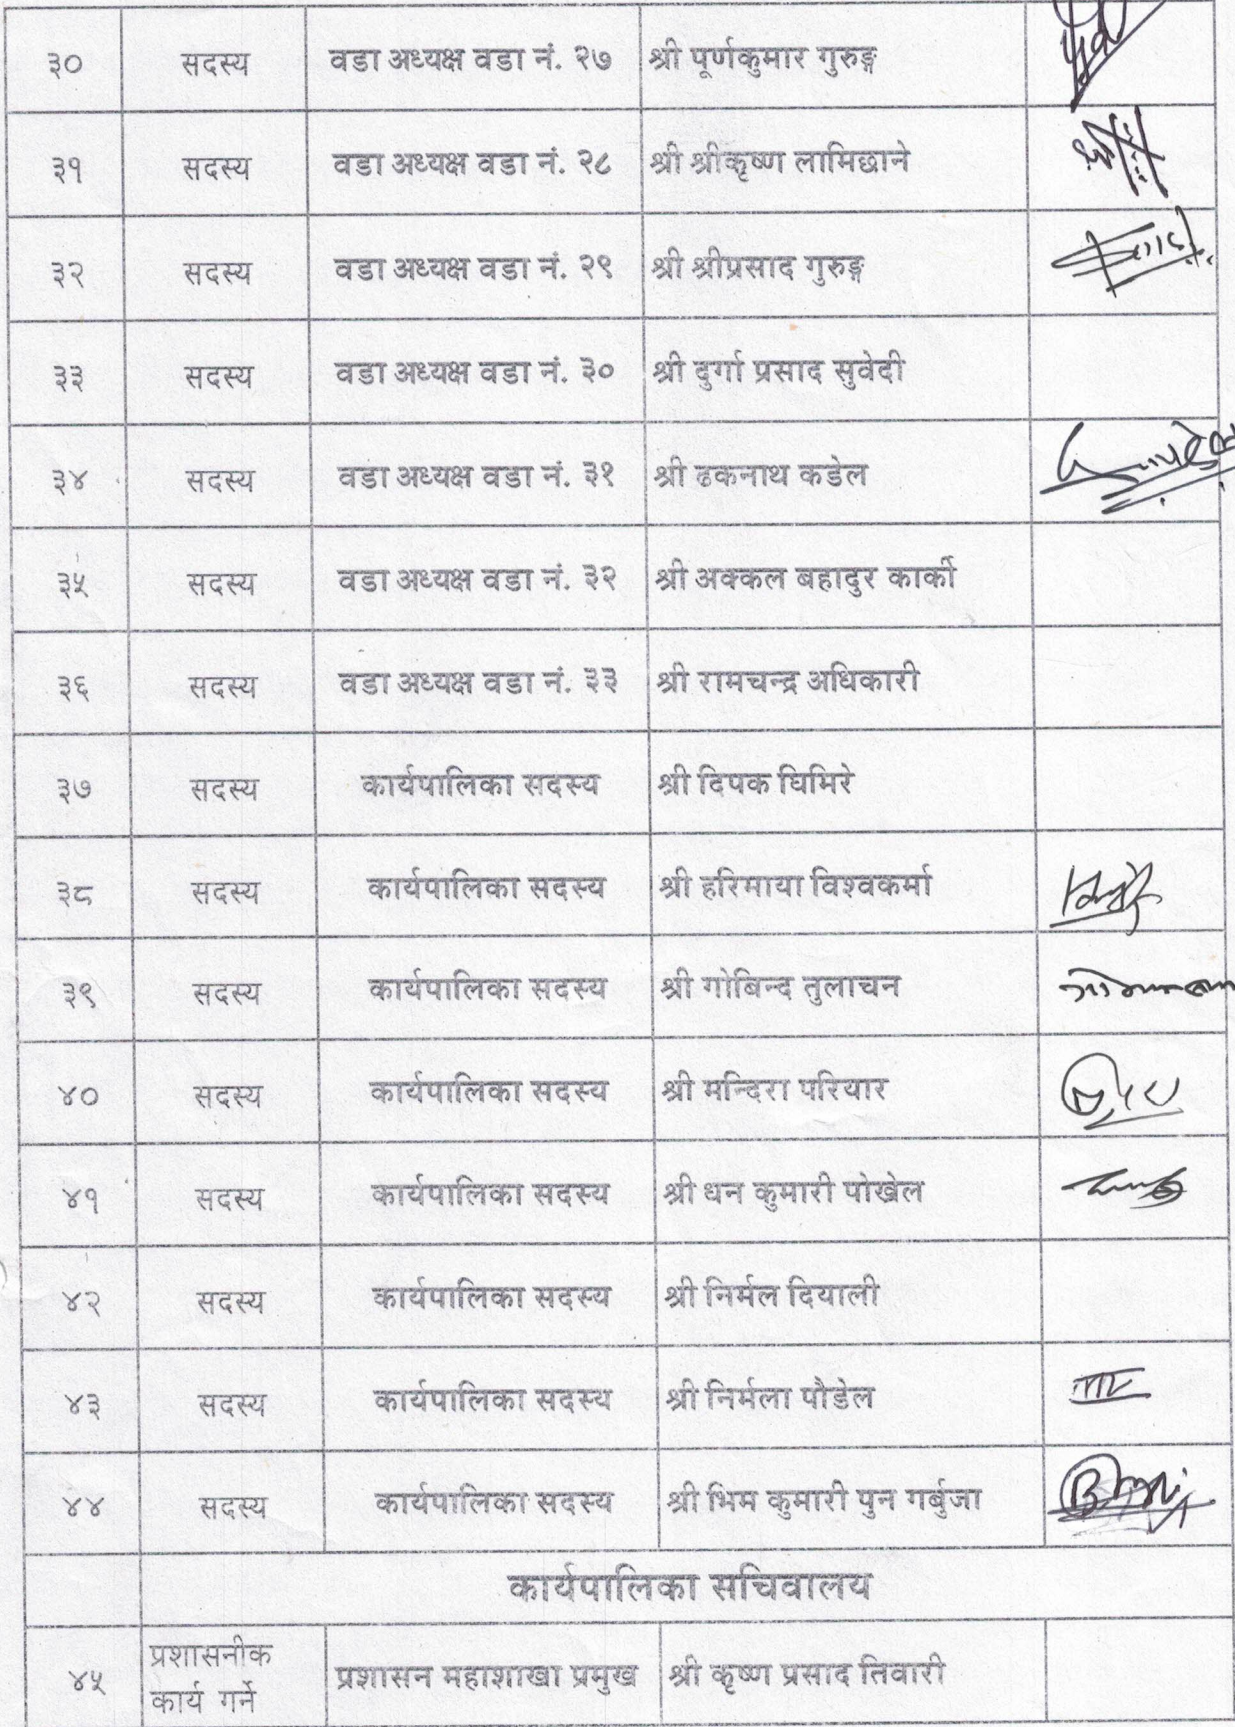 ३० सदस्य वडा अध्यक्ष वडा नं. २७ श्री पूर्णकुमार गुरुङ्ग
३१ सदस्य वडा अध्यक्ष वडा नं. २८ श्री श्रीकृष्ण लामिछाने
३२ सदस्य वडा अध्यक्ष वडा नं. २९ श्री श्रीप्रसाद गुरुङ्ग
३३ सदस्य वडा अध्यक्ष वडा नं. ३० श्री दुर्गा प्रसाद सुवेदी
३४ सदस्य वडा अध्यक्ष वडा नं. ३१ श्री ढकनाथ कडेल
३५ सदस्य वडा अध्यक्ष वडा नं. ३२ श्री अक्कल बहादुर कार्की
३६ सदस्य वडा अध्यक्ष वडा नं. ३३ श्री रामचन्द्र अधिकारी
३७ सदस्य कार्यपालिका सदस्य श्री दिपक घिमिरे
३८ सदस्य कार्यपालिका सदस्य श्री हरिमाया विश्वकर्मा
३९ सदस्य कार्यपालिका सदस्य श्री गोबिन्द तुलाचन
४० सदस्य कार्यपालिका सदस्य श्री मन्दिरा परियार
४१ सदस्य कार्यपालिका सदस्य श्री धन कुमारी पोखेल
४२ सदस्य कार्यपालिका सदस्य श्री निर्मल दियाली
४३ सदस्य कार्यपालिका सदस्य श्री निर्मला पौडेल
४४ सदस्य कार्यपालिका सदस्य श्री भिम कुमारी पुन गर्बुजा
कार्यपालिका सचिवालय
४५ प्रशासनीक कार्य गर्ने प्रशासन महाशाखा प्रमुख श्री कृष्ण प्रसाद तिवारी